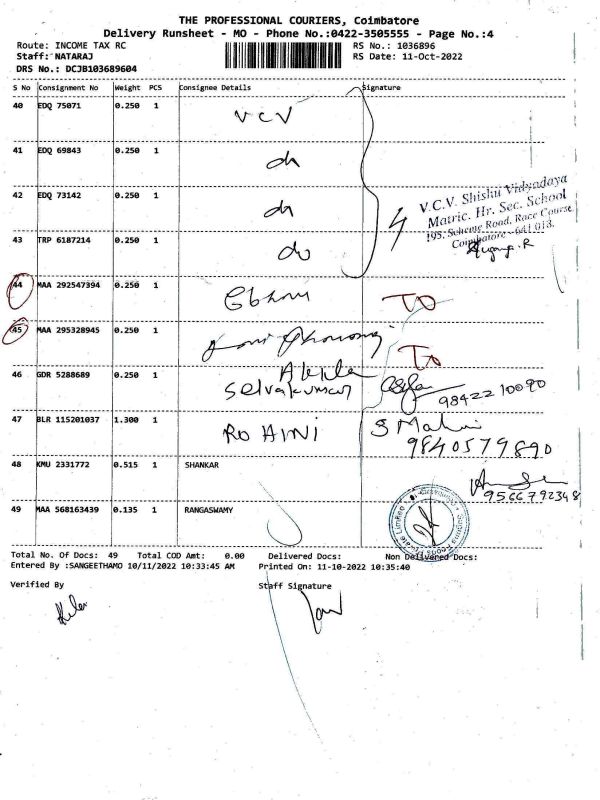 THE PROFESSIONAL COURIERS, Coimbatore
Delivery Runsheet - MO - Phone No.:0422-3505555 - Page No.:4
Route: INCOME TAX RC RS No.: 1036896
Staff: NATARAJ RS Date: 11-Oct-2022
DRS No.: DCJB103689604
S No Consignment No Weight PCS Consignee Details Signature
40 EDQ 75071 0.250 1 VCV
41 EDQ 69843 0.250 1 do
42 EDQ 73142 0.250 1 do
V.C.V. Shishu Vidyodaya
Matric. Hr. Sec. School
195, Scheme Road, Race Course
Coimbatore - 641 018.
43 TRP 6187214 0.250 1 do
44 MAA 292547394 0.250 1 TO
45 MAA 295328945 0.250 1 To
46 GDR 5288689 0.250 1 Akila
Selvakumar 98422 10090
47 BLR 115201037 1.300 1 ROHINI S Malini
9840579890
48 KMU 2331772 0.515 1 SHANKAR
9566792348
49 MAA 568163439 0.135 1 RANGASWAMY
Total No. Of Docs: 49 Total COD Amt: 0.00 Delivered Docs: Non Delivered Docs:
Entered By :SANGEETHAMO 10/11/2022 10:33:45 AM Printed On: 11-10-2022 10:35:40
Verified By Staff Signature